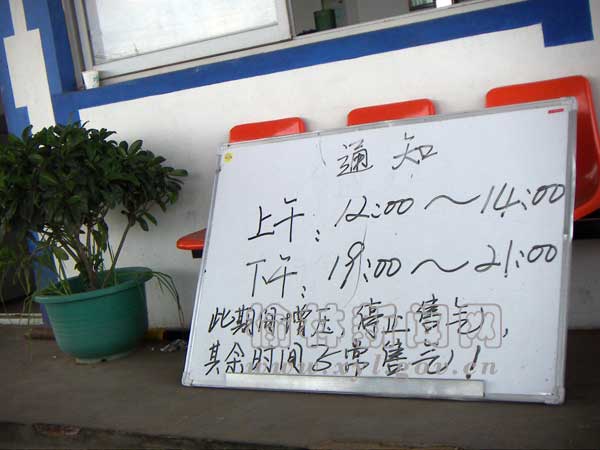 通知
上午：12:00～14:00
下午：19:00～21:00
此期间增压，停止售气，
其余时间正常售气！
榆林新闻网
www.xyl.gov.cn